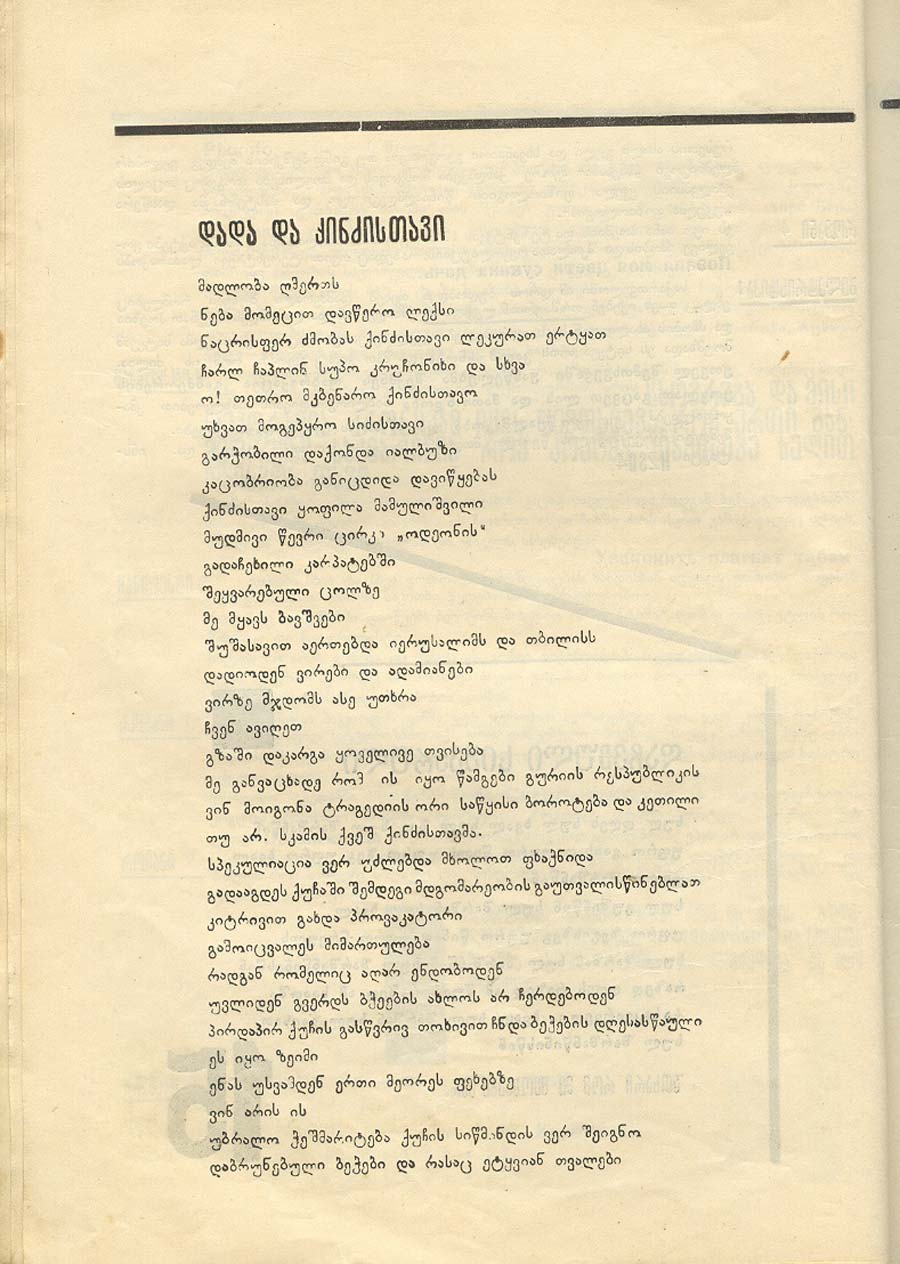 დადა და ქინძისთავი
მადლობა ღმერთს
ნება მომეცით დავწერო ლექსი
ნაცრისფერ ძმობას ქინძისთავი ლეკურათ ერტყათ
ჩარლ ჩაპლინ სუპო კრუჩონიხი და სხვა
ო! თეთრო მკბენარო ქინძისთავო
უხვათ მოგეპყრო სიძისთავი
გარჭობილი დაქონდა იალბუზი
კაცობრიობა განიცდიდა დავიწყებას
ქინძისთავი ყოფილა მამულიშვილი
მუდმივი წევრი ცირკ „ოდეონის“
გადაჩეხილი კარპატებში
შეყვარებული ცოლზე
მე მყავს ბავშვები
შუშასავით აერთებდა იერუსალიმს და თბილისს
დადიოდენ ვირები და ადამიანები
ვირზე მჯდომს ასე უთხრა
ჩვენ ავიღეთ
გზაში დაკარგა ყოველივე თვისება
მე განვაცხადე რომ ის იყო წამგები გურიის რესპუბლიკის
ვინ მოიგონა ტრაგედიის ორი საწყისი ბოროტება და კეთილი
თუ არ. სკამის ქვეშ ქინძისთავმა.
სპეკულიაცია ვერ უძლებდა მხოლოთ ფხაქნიდა
გადააგდეს ქუჩაში შემდეგი მდგომარეობის გაუთვალისწინებლათ
კიტრივით გახდა პროვაკატორი
გამოიცვალეს მიმართულება
რადგან რომელიც აღარ ენდობოდენ
უვლიდენ გვერდს ბჭეების ახლოს არ ჩერდებოდენ
პირდაპირ ქუჩის გასწვრივ თოხივით ჩნდა ბეჭების დღესასწაული
ეს იყო ზეიმი
ენას უსვამდენ ერთი მეორეს ფეხებზე
ვინ არის ის
უბრალო ჭეშმარიტება ქუჩის სიწმინდის ვერ შეიგნო
დაბრუნებული ბეჭები და რასაც ეტყვიან თვალები